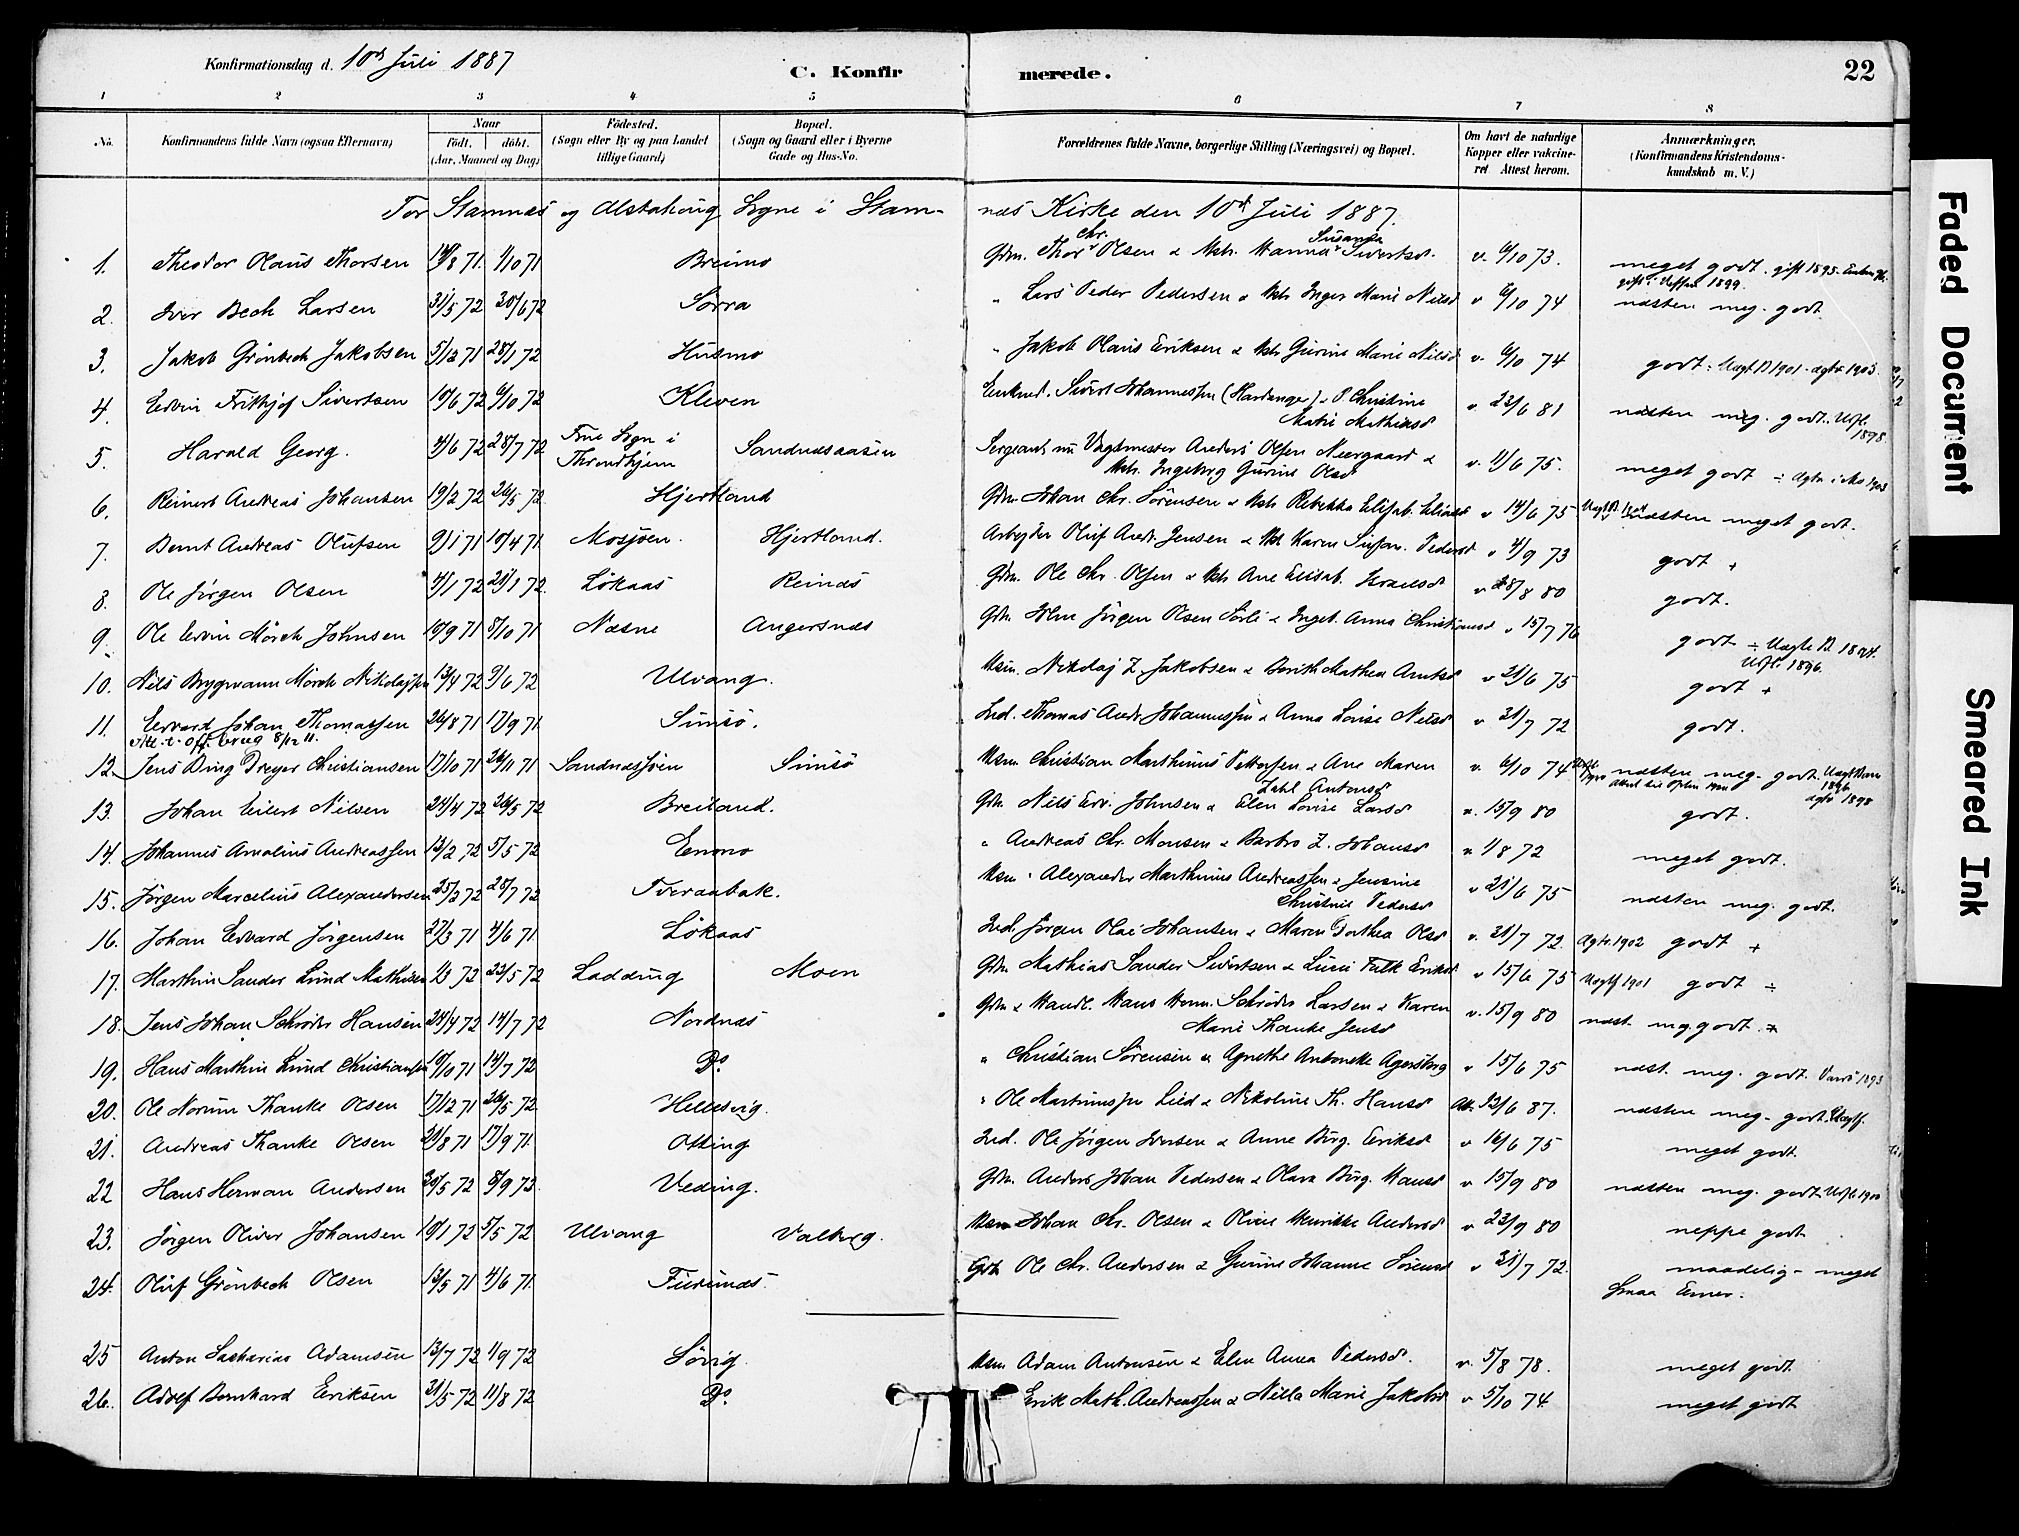 Konfirmationsdag d. 10de Juli 1887
C. Konfir merede. 22
1 2 3 4 5 6 7 8
No. Konfirmandens fulde Navn (ogsaa Efternavn) Naar Födt. döbt. (Aar, Maaned og Dag) Födested. (Sogn eller By og paa Landet tillige Gaard) Bopæl. (Sogn og Gaard eller i Byerne Gade og Hus-No. Forældrenes fulde Navne, borgerlige Stilling (Næringsvei) og Bopæl. Om havt de naturlige Kopper eller vakcineret Attest herom. Anmærkninger. (Konfirmandens Kristendomskundskab m. V.)
For Stamnæs og Alstahoug Sogne i Stamnæs Kirke den 10de Juli 1887.
1. Theodor Olaus Thorsen 71. 1/10 71 Breimo Gdm. Thor Chr. Olsen & Hstr. Hanna Susanna Sivertsd. v. 6/10 73. meget godt. gift 1895.
2. Iver Bech Larsen 31/5 72 30/6 72 Sørra " Lars Peder Pedersen & Hstr. Inger Marie Nilsd v 6/10 74 næsten meg. godt. 1899.
3. Jakob Grönbech Jakobsen 5/12 71 28/1 72 Husmo " Jakob Olaus Eriksen & Hstr Gurine Marie Nilsd v. 6/10 74 godt
4. Edvin Frithjof Sivertsen 10/6 72 6/10 72 Kleven Enkmd. Sivert Johannessen (Hardanger) & P. Christine Matie Mathiasd v. 23/6 81 næsten meg. godt. Utfl. 1898.
5. Harald Georg. 4/6 72 28/7 72 Frue Sogn i Throndhjem Sandnæsaasen Sergeant nu Vagtmester Anders Olsen Neergaard & Hstr. Ingeborg Gurine Olsd v. 11/6 75. meget godt
6. Reinert Andreas Johansen 19/2 72 26/5 72 Hjertland Gdm. Johan Chr. Sörensen & Hstr Rebekka Elisab. Eliasd v 14/6 75 næsten meget godt.
7. Bernt Andreas Olufsen 9/1 71 10/4 71 Mosjøen. Hjertland. Arbejder Oluf Andr. Jensen & Hst Karen Susan. Pedersd v 4/9 73 godt +
8. Ole Jörgen Olsen 4/1 72 21/1 72. Lökaas Reinæs Gdm. Ole Chr. Olsen & Hstr Ane Elisab. Israelsd v 28/8 80 godt.
9. Ole Edvin Mörch Johnsen 10/9 71 8/10 71 Næsne Angersnæs Gdm. John Jörgen Olsen Sörli & Ingeb. Anna Christiansd v 15/7 76 godt 1894. Utfl. 1896.
10. Nils Brygmann Mörch Nikolajsen 13/4 72 9/6 72 Ulvang. Hsm. Nikolaj Z. Jakobsen & Berith Mathea Arntsd v 21/6 75 godt +
11. Edvard Johan Thomassen 26/8 71 17/9 71. Simsö. Ind. Thomas Andr. Johannessen & Anna Lovise Nilsd v. 21/7 72 godt.
12. Jens Bing Dreyer Christiansen 17/10 71 26/11 71 Sandnæssjöen Simsö Hsm. Christian Marthinus Pettersen & Ane Maren Zahl Antonsd v. 6/10 74 næsten meg. godt. 1896 1898
13. Johan Eilert Nilsen 24/4 72 26/5 72 Breiland. Gdm. Nils Edv. Johnsen & Elen Lovise Larsd v. 15/9 80 godt.
14. Johannes Amalius Andreassen 13/2 72 5/5 72 Enmo " Andreas Chr. Monsen & Barbro Z. Johansd v 1/8 72 meget godt.
15. Jörgen Marcelius Alexandersen 25/3 72 28/7 72 Tveraabak. Hsm. Alexander Marthinus Andreassen & Jensine Christine Pedersd v 21/6 75 næsten meg. godt.
16. Johan Edvard Jörgensen 27/3 71 4/6 71. Lökaas Ind. Jörgen Olai Johansen & Maren Dorthea Olsd v. 21/7 72. 1902 godt +
17. Marthin Sander Lund Mathisen 1/3 72 23/5 72 Ladding Moen Gdm. Mathias Sander Sivertsen & Lucie Falk Eriksd v 15/6 75 1901 godt
18. Jens Johan Schröder Hansen 24/4 72 14/7 72 Nordnæs Gdm & Handl. Hans Herm. Schröder Larsen & Karen Marie Thanke Jensd v. 15/9 80 næst. meg. godt.
19. Haus Marthin Lund Christiansen 10/10 71 14/7 72 Do. " Christian Sörensen & Agnethe Antonette Agersborg v 15/6 75 næst. meg. godt. 1893
20. Ole Norum Thanke Olsen 17/12 71 26/5 72. Hellesvig. " Ole Martinussen Lied & Nikoline Th. Hansd Att. 12/6 87. næsten meg. godt.
21. Andreas Thanke Olsen 21/8 71 17/9 71. Otting Ind. Ole Jörgen Jensen & Anne Birg. Eriksd v 16/6 75 meget godt.
22 Hans Herman Andersen 30/5 72 8/9 72. Veding. Gdm. Anders Johan Pedersen & Olava Birg. Hansd v 15/9 80 næsten meg. godt. Utfl. 1900
23. Jörgen Oliver Johansen 10/1 72 5/5 72 Ulvang Valberg. Hsm Johan Chr. Olsen & Oline Henrikke Andersd v 23/9 80 neppe godt
24. Oluf Grönbech Olsen 13/5 71 4/6 71. Furunæs. Gdm Ole Chr. Andersen & Gurine Johanne Sörensd v 21/7 72. maadelig - meget smaa Evner.
25 Anton Sakarias Adamsen 13/7 72 1/9 72 Sövig. Hsm Adam Antonsen & Elen Anna Pedersd. v. 5/8 78. meget godt.
26. Adolf Bernhard Eriksen 31/5 72 11/8 72 Do. Erik Math. Andreassen & Nilla Marie Jakobsd v 5/10 74 meget godt
Faded Document
Smeared Ink